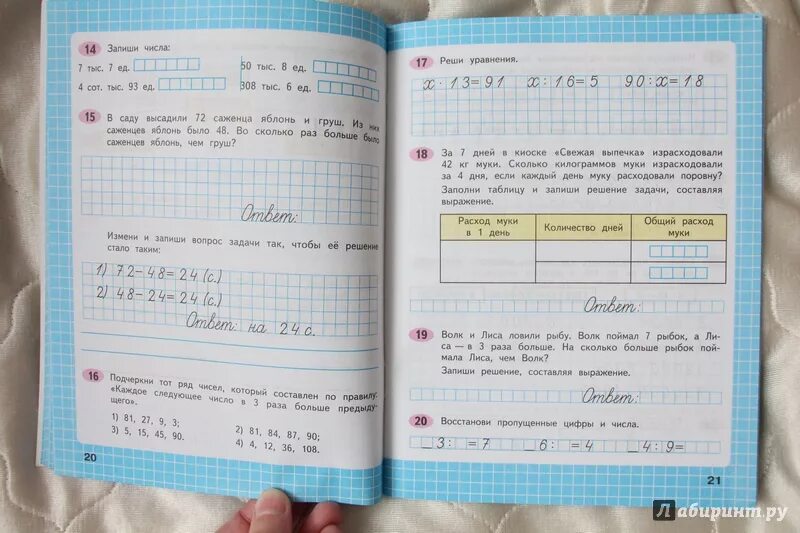 14 Запиши числа:
7 тыс. 7 ед.
50 тыс. 8 ед.
4 сот. 93 ед.
308 тыс. 6 ед.
15 В саду высадили 72 саженца яблонь и груш. Из них
саженцев яблонь было 48. Во сколько раз больше было
саженцев яблонь, чем груш?
Ответ:
Измени и запиши вопрос задачи так, чтобы её решение
стало таким:
1) 72–48=24(с.)
2) 48–24=24(с.)
Ответ: на 24 с.
16 Подчеркни тот ряд чисел, который составлен по правилу:
«Каждое следующее число в 3 раза больше предыду-
щего».
1) 81, 27, 9, 3;
2) 81, 84, 87, 90;
3) 5, 15, 45, 90.
4) 4, 12, 36, 108.
20
17 Реши уравнения.
x·13=91 x:16=5 90:x=18
18 За 7 дней в киоске «Свежая выпечка» израсходовали
42 кг муки. Сколько килограммов муки израсходовали
за 4 дня, если каждый день муку расходовали поровну?
Заполни таблицу и запиши решение задачи, составляя
выражение.
Расход муки
в 1 день
Количество дней
Общий расход
муки
Ответ:
19 Волк и Лиса ловили рыбу. Волк поймал 7 рыбок, а Ли-
са — в 3 раза больше. На сколько больше рыбок пой-
мала Лиса, чем Волк?
Запиши решение, составляя выражение.
Ответ:
20 Восстанови пропущенные цифры и числа.
_3: =7 _6: =4 _4:9=
21
Лабиринт.ру